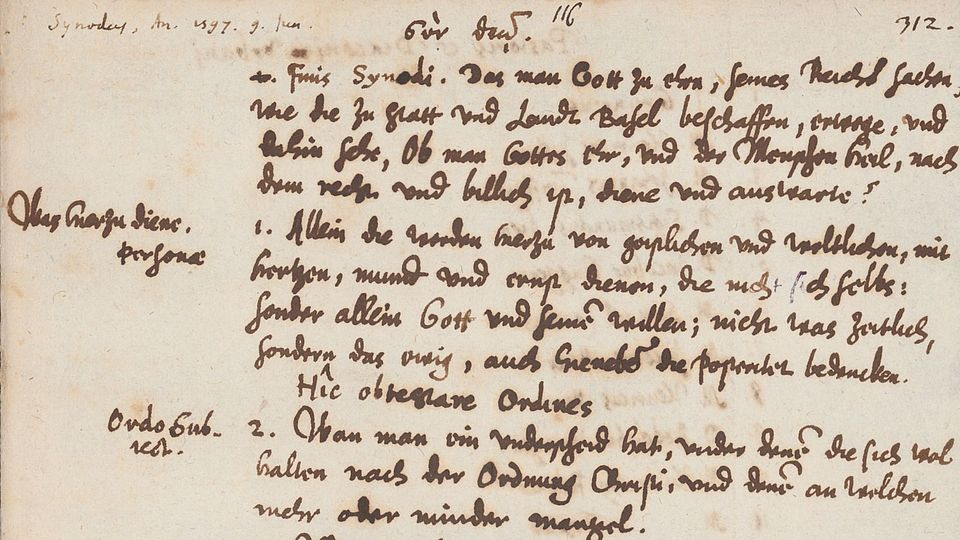 Synodus, An. 1597. 9. Jun.
116
312.
Finis Synodi. Das man Gott zu ehrn, seines Reichs sachen,
wie die zu Statt und Landt Basel beschaffen, erwege, und
dahin sehe, Ob man Gottes ehr, und der Menschen heil, nach
dem recht und billich ist, diene und auswarte?
Was hierzu diene.
Personae
1. Allein die werden hierzu von geistlichen und weltlichen, mit
hertzen, mund und ernst dienen, die nicht sich selbs:
sonder allein Gott und seinē willen; nicht was zeitlich,
sondern das ewig, auch die Posteritet bedencken.
Hîc obtestare Ordines
Ordo Sub-
iect.
2. Wan man ein underscheid hat, under denē die sich wol
halten nach der Ordnung Christi, und denē an welchen
mehr oder minder mangel.